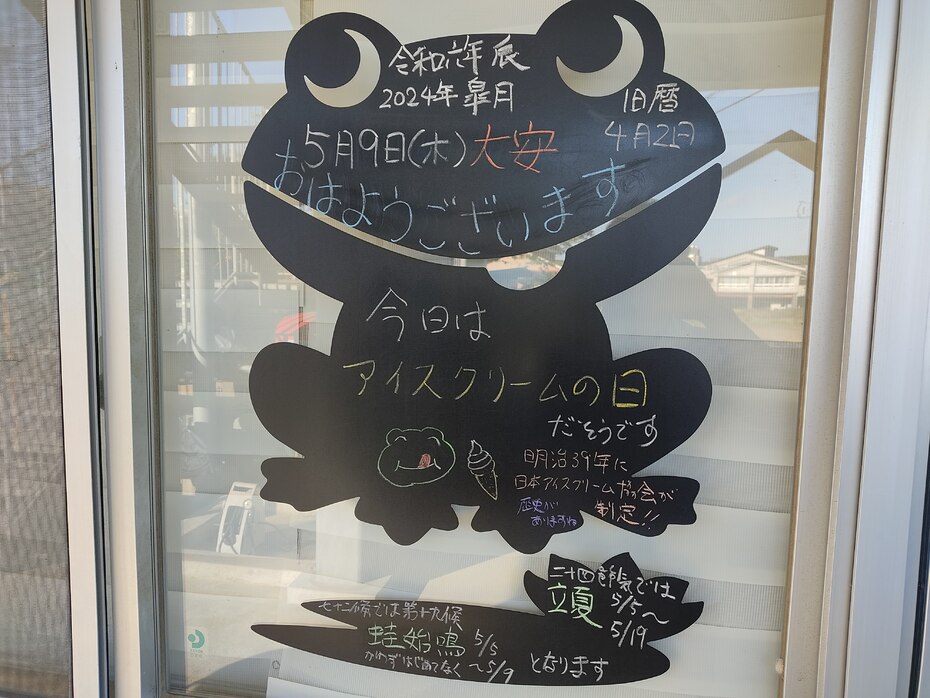 令和六年 辰
2024年 皐月
旧暦
4月2日
5月9日(木)大安
おはようございます
今日は
アイスクリームの日
だそうです
明治39年に
日本アイスクリーム協会が
制定!!
歴史が
ありますね
二十四節気では
立夏
5/5〜
5/19
七十二候では第十九候
蛙始鳴 5/5
かわずはじめてなく 〜5/9
となります